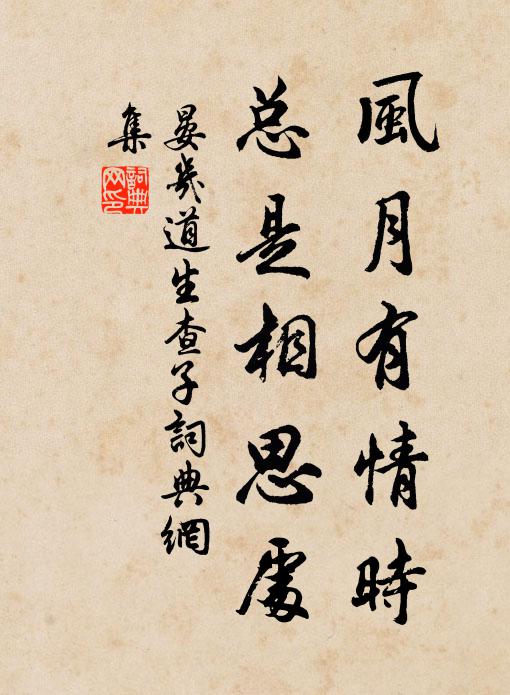 風月有情時
总是相思處
晏幾道生查子詞典網
集
詞典
网印